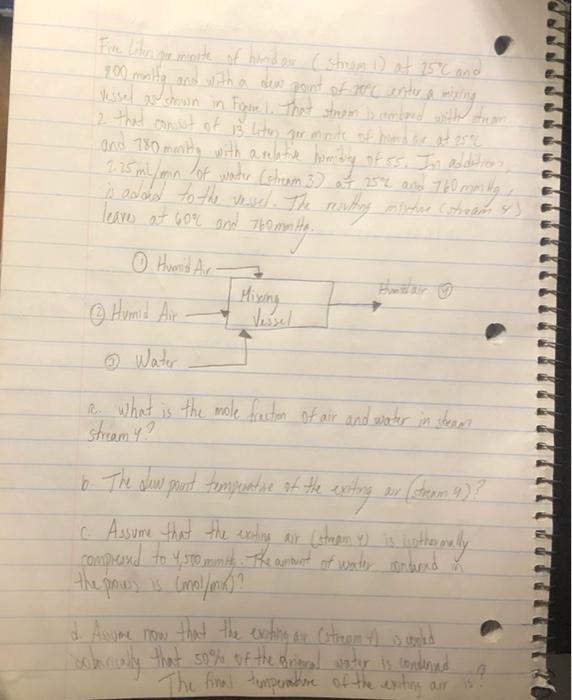 Five Liters per minute of humid air (stream 1) at 25°C and
800 mmHg and with a dew point of 20°C enter a mixing
vessel as shown in Figure 1. That stream is combined with stream
2 that consist of 13 Liters per minute of humid air at 25°C
and 780 mmHg with a relative humidity of 55. In addition,
2.25 mL/min of water (stream 3) at 25°C and 760 mmHg,
is added to the vessel. The resulting mixture (stream 4)
leaves at 60°C and 760 mmHg.
① Humid Air
Mixing
Vessel
Humid air ④
② Humid Air
③ Water
a. What is the mole fraction of air and water in steam
stream 4?
b. The dew point temperature of the exiting air (stream 4)?
c. Assume that the exiting air (stream 4) is isothermally
compressed to 4,500 mmHg. The amount of water condensed in
the process is (mol/min)?
d. Assume now that the exiting air (stream 4) is cooled
isobarically that 50% of the original water is condensed
The final temperature of the exiting air is?